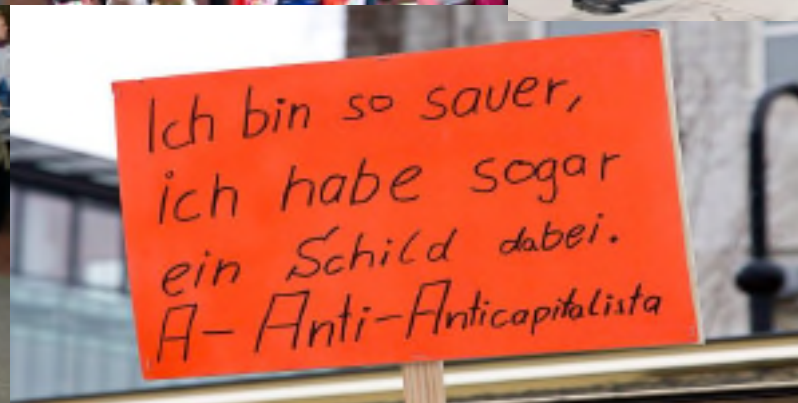 Ich bin so sauer,
ich habe sogar
ein Schild dabei.
A- Anti-Anticapitalista